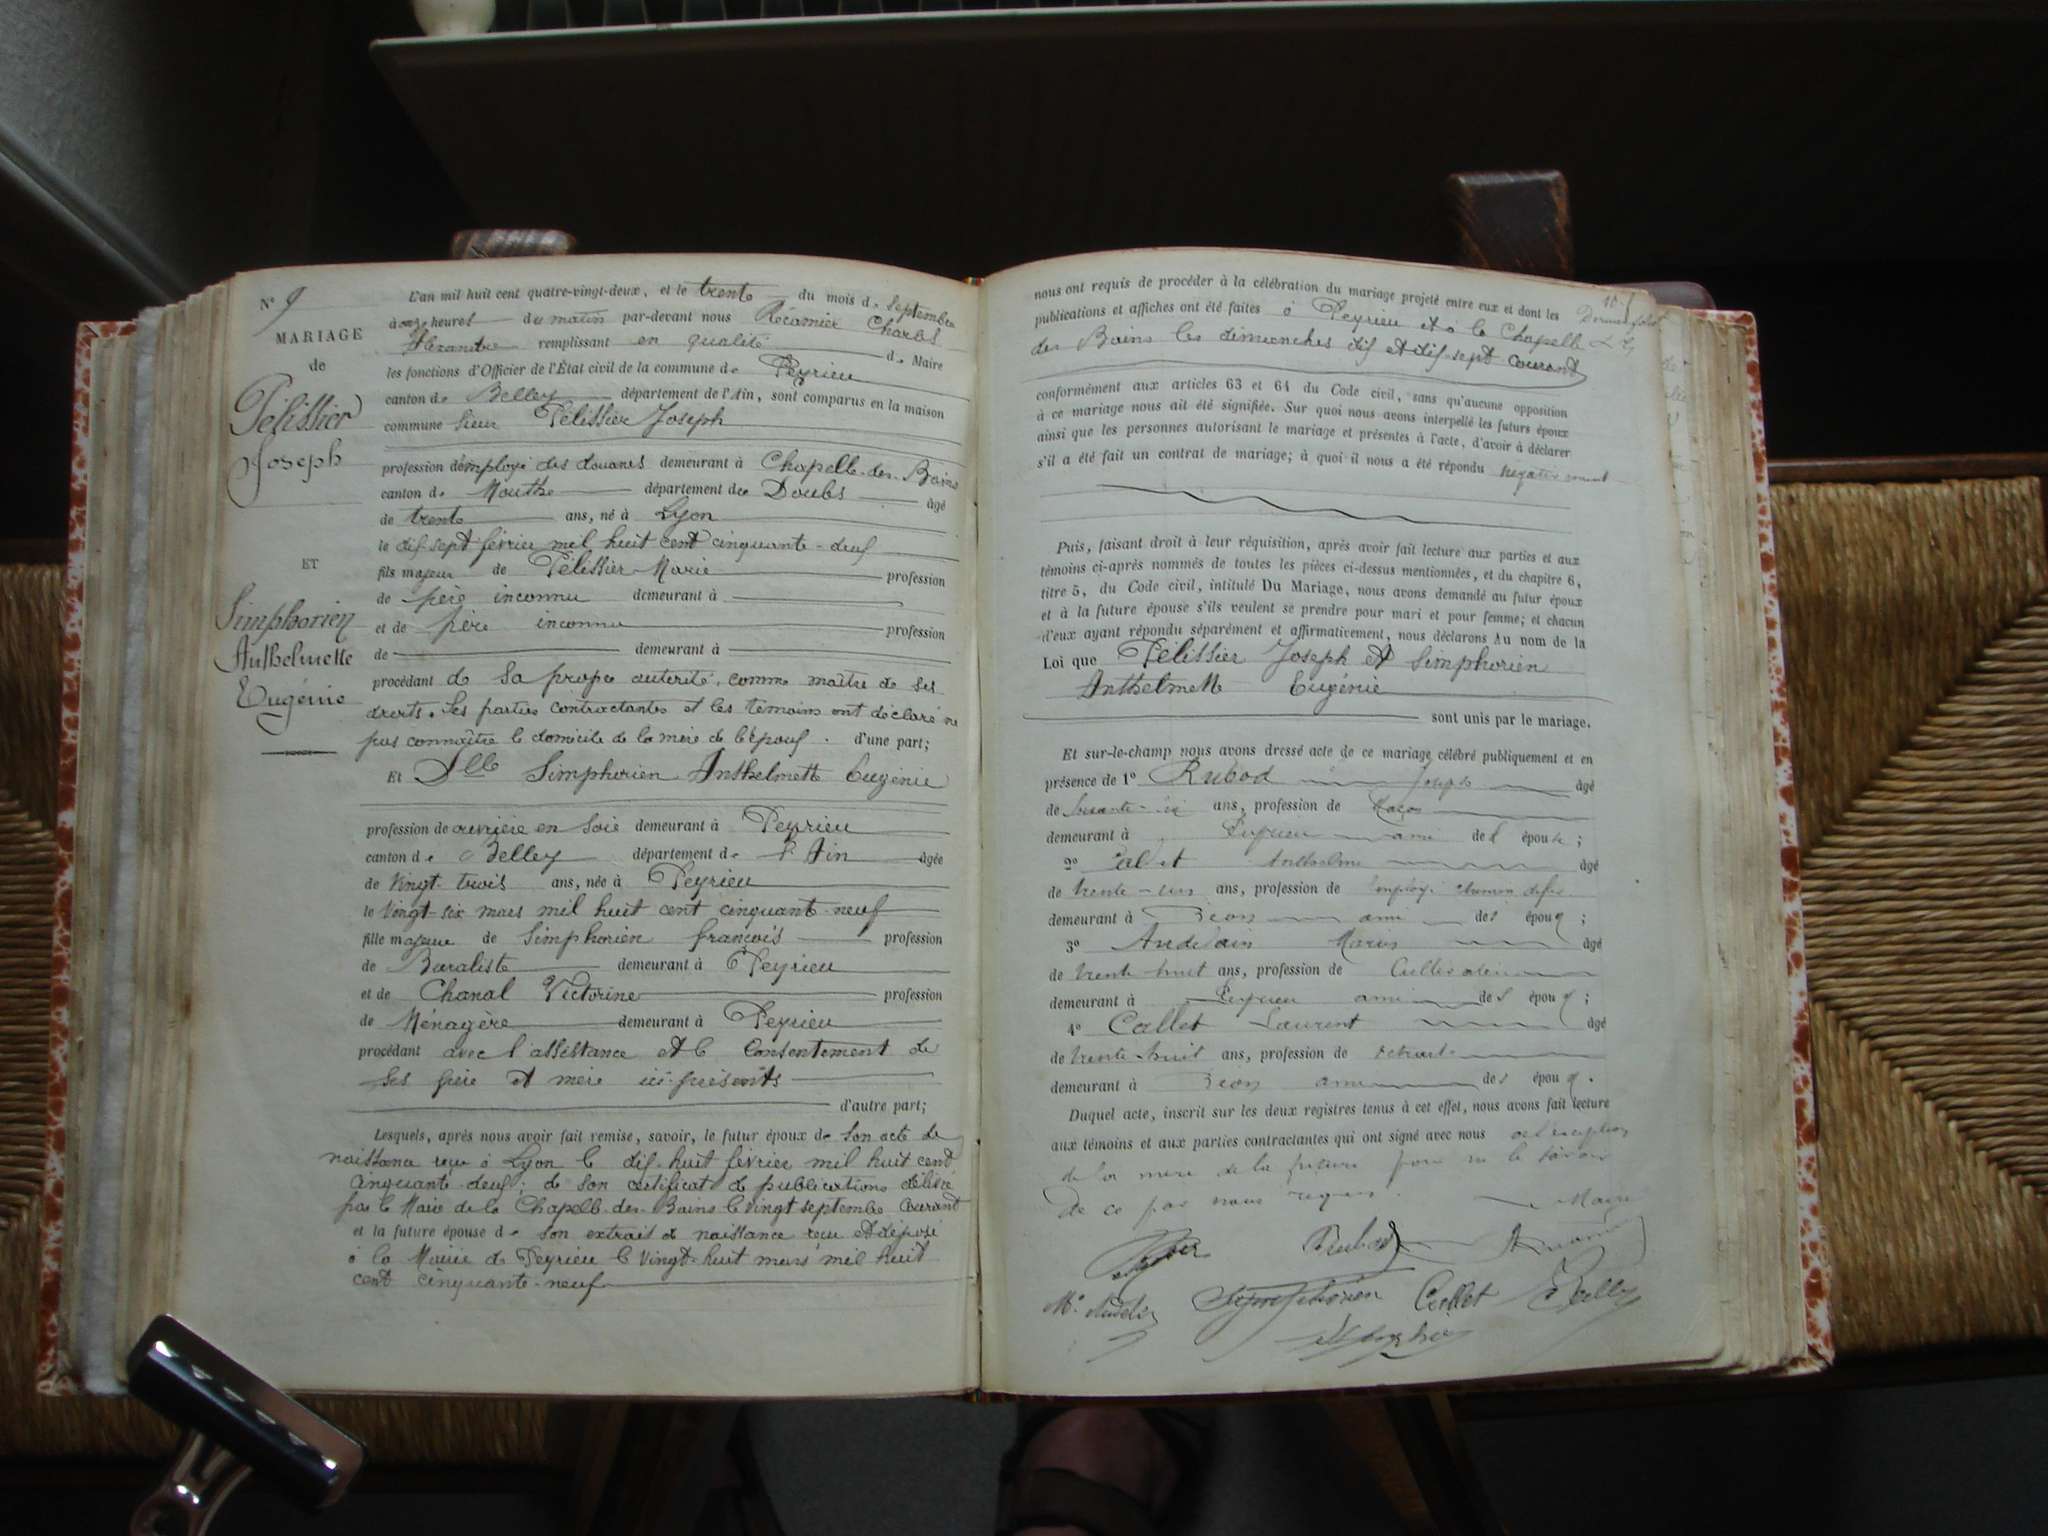 N° 9
MARIAGE
de
Pélissier
Joseph
ET
Simphorien
Anthelmette
Eugénie
L'an mil huit cent quatre-vingt-deux, et le trente du mois de septembre
à onze heures du matin par-devant nous Récamier Charles
Alexandre remplissant en qualité de Maire
les fonctions d'Officier de l'État civil de la commune de Peyrieu
canton de Belley département de l'Ain, sont comparus en la maison
commune sieur Pélissier Joseph
profession d'employé des douanes demeurant à Chapelle-des-Bains
canton de Mouthe département du Doubs âgé
de trente ans, né à Lyon
le dix sept février mil huit cent cinquante-deux
fils majeur de Pélissier Marie profession
de père inconnu demeurant à
et de père inconnu profession
de demeurant à
procédant de sa propre autorité, comme maître de ses
droits. Les parties contractantes et les témoins ont déclaré ne
pas connaître le domicile de la mère de l'époux. d'une part;
Et Dlle Simphorien Anthelmette Eugénie
profession de ouvrière en soie demeurant à Peyrieu
canton de Belley département de l'Ain âgée
de vingt-trois ans, née à Peyrieu
le vingt-six mars mil huit cent cinquante-neuf
fille majeure de Simphorien françois profession
de Buraliste demeurant à Peyrieu
et de Chanal Victorine profession
de Ménagère demeurant à Peyrieu
procédant avec l'assistance et le consentement de
ses père et mère ici présents
d'autre part;
Lesquels, après nous avoir fait remise, savoir, le futur époux de son acte de
naissance reçu à Lyon le dix-huit février mil huit cent
cinquante-deux; de son certificat de publications délivré
par le Maire de la Chapelle-des-Bains le vingt septembre courant
et la future épouse de son extrait de naissance reçu et déposé
à la Mairie de Peyrieu le vingt-huit mars mil huit
cent cinquante-neuf
nous ont requis de procéder à la célébration du mariage projeté entre eux et dont les
publications et affiches ont été faites à Peyrieu et à la Chapelle
des Bains les dimanches dix et dix-sept courant
conformément aux articles 63 et 64 du Code civil, sans qu'aucune opposition
à ce mariage nous ait été signifiée. Sur quoi nous avons interpellé les futurs époux
ainsi que les personnes autorisant le mariage et présentes à l'acte, d'avoir à déclarer
s'il a été fait un contrat de mariage; à quoi il nous a été répondu négativement
Puis, faisant droit à leur réquisition, après avoir fait lecture aux parties et aux
témoins ci-après nommés de toutes les pièces ci-dessus mentionnées, et du chapitre 6,
titre 5, du Code civil, intitulé Du Mariage, nous avons demandé au futur époux
et à la future épouse s'ils veulent se prendre pour mari et pour femme; et chacun
d'eux ayant répondu séparément et affirmativement, nous déclarons Au nom de la
Loi que Pélissier Joseph et Simphorien
Anthelmette Eugénie
sont unis par le mariage.
Et sur-le-champ nous avons dressé acte de ce mariage célébré publiquement et en
présence de 1° Rubod Joseph âgé
de ans, profession de Maçon
demeurant à Peyrieu ami de l'épouse;
2° Anthelme âgé
de trente-un ans, profession de employé chemin de fer
demeurant à ami des époux;
3° Marin âgé
de trente huit ans, profession de Cultivateur
demeurant à Peyrieu ami des époux;
4° Callet Laurent âgé
de trente-huit ans, profession de retraité
demeurant à ami des époux.
Duquel acte, inscrit sur les deux registres tenus à cet effet, nous avons fait lecture
aux témoins et aux parties contractantes qui ont signé avec nous à l'exception
de la mère de la future pour ne le savoir
de ce par nous requis. Maire
Rubod
Symphorien Callet